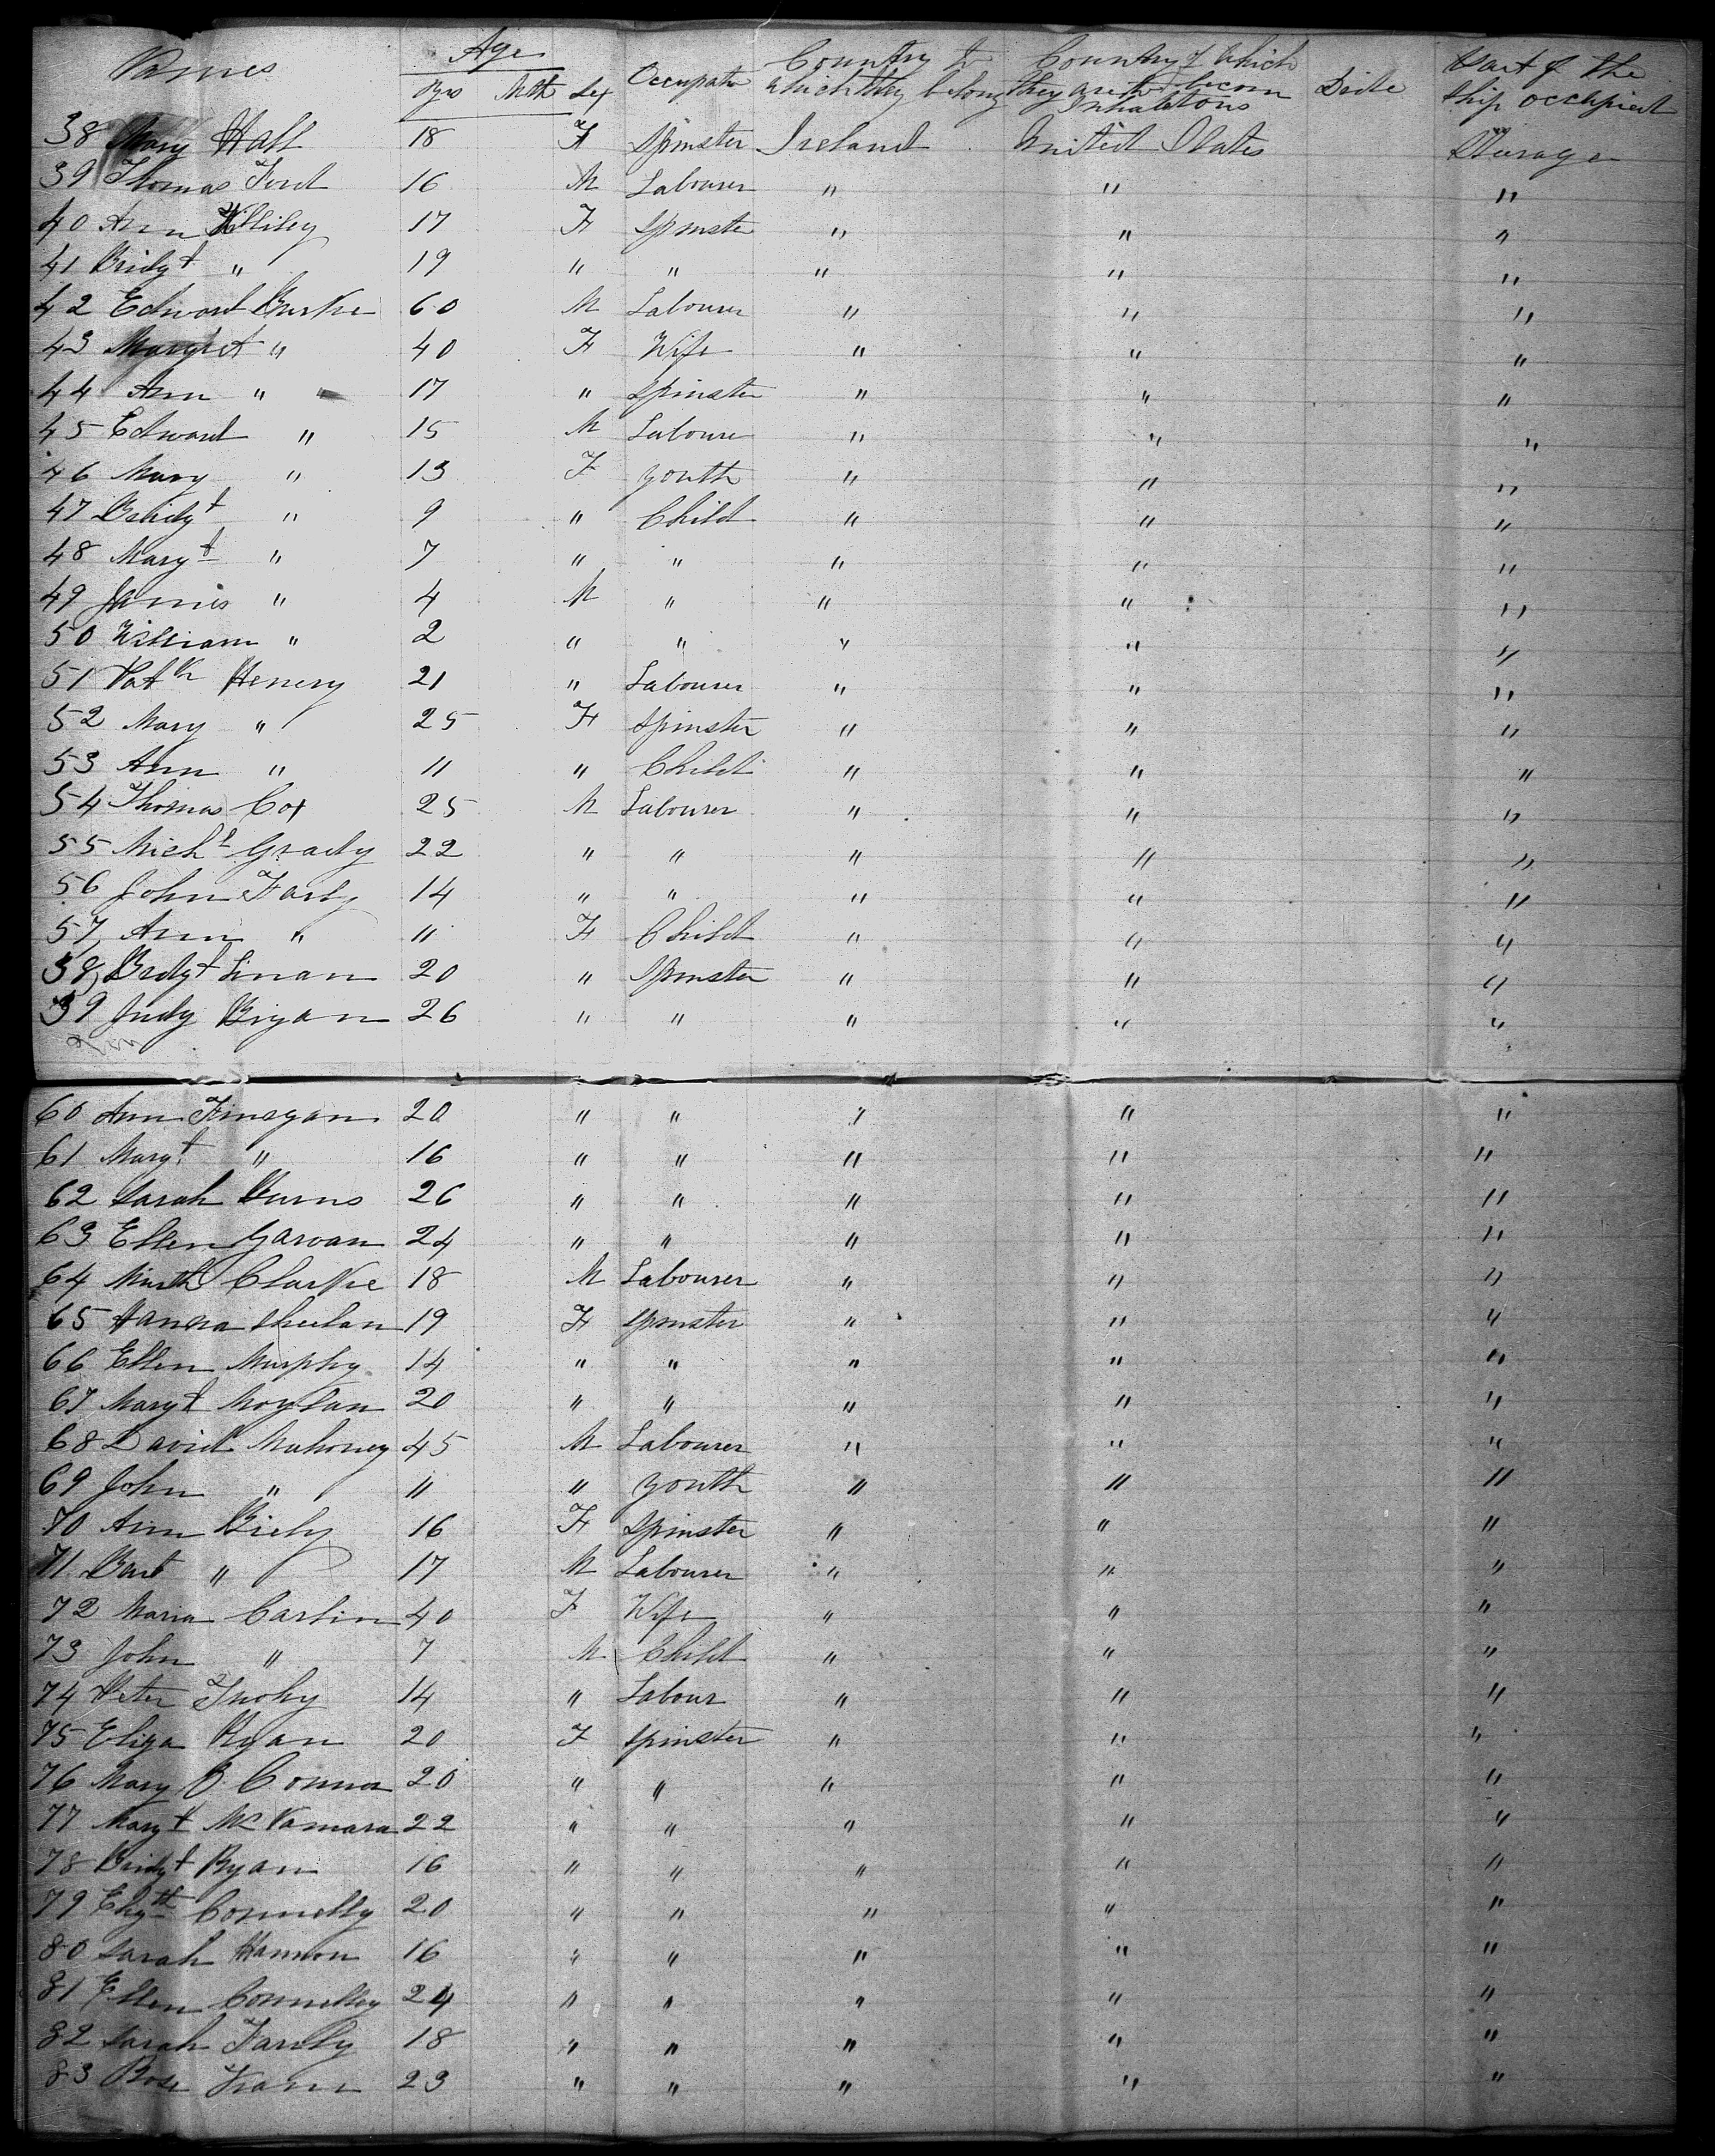 Names Age Yrs Mth Sex Occupatn Country to which they belong Country of which they are to becom Inhabitans Died Part of the ship occupied
38 Mary Hall 18 F Spinster Ireland United States Sterage
39 Thomas Ford 16 M Labourer " " "
40 Ann 17 F Spinster " " "
41 Bridgt " 19 " " " " "
42 Edward Burke 60 M Labourer " " "
43 Margret " 40 F Wife " " "
44 Ann " 17 " Spinster " " "
45 Edward " 15 M Laboure " " "
46 Mary " 13 F youth " " "
47 Bridgt " 9 " Child " " "
48 Margt " 7 " " " " "
49 James " 4 M " " " "
50 William " 2 " " " " "
51 Patk Henery 21 " Labourer " " "
52 Mary " 25 F Spinster " " "
53 Ann " 11 " Child " " "
54 Thomas Cox 25 M Labourer " " "
55 Michl Grady 22 " " " " "
56 John Farly 14 " " " " "
57 Ann " 11 F Child " " "
58 Bridgt Linan 20 " Spinster " " "
59 Judy Bryan 26 " " " " "
60 Ann Finegan 20 " " " " "
61 Margt " 16 " " " " "
62 Sarah Burns 26 " " " " "
63 Ellen Garvan 24 " " " " "
64 Clarke 18 M Labourer " " "
65 Hanna Sheehan 19 F Spinster " " "
66 Ellen Murphy 14 " " " " "
67 Margt Moylan 20 " " " " "
68 David Mahoney 45 M Labourer " " "
69 John " 11 " youth " " "
70 Ann 16 F Spinster " " "
71 Bart " 17 M Labourer " " "
72 Maria Carlin 40 F Wife " " "
73 John " 7 M Child " " "
74 Peter Tuohy 14 " Labour " " "
75 Eliza Ryan 20 F Spinster " " "
76 Mary O Connor 20 " " " " "
77 Margt McNamara 22 " " " " "
78 Bridgt Ryan 16 " " " " "
79 Elizth Connelly 20 " " " " "
80 Sarah Hannon 16 " " " " "
81 Ellen Connelly 24 " " " " "
82 Sarah Farely 18 " " " " "
83 Rose 23 " " " " "